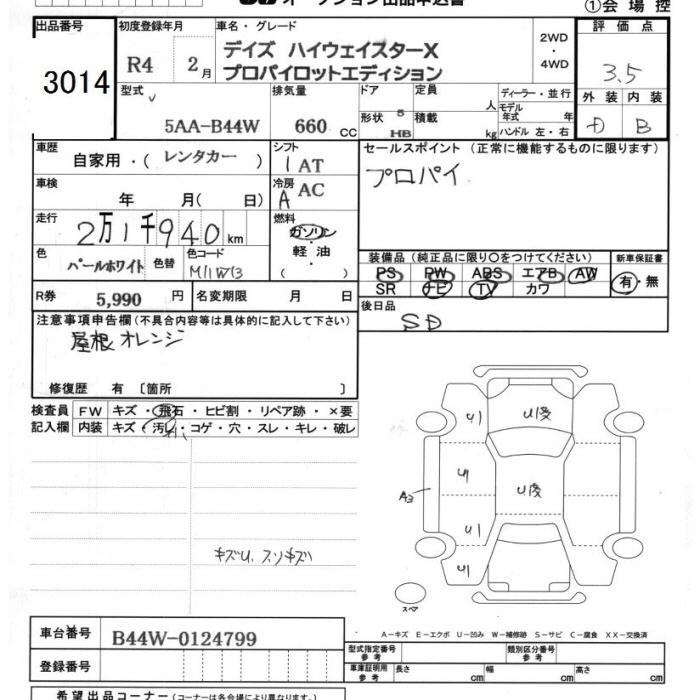 ①会場控
出品番号
3014
初度登録年月
R4 2月
車名・グレード
デイズ ハイウェイスターX
プロパイロットエディション
2WD
・
4WD
評価点
3.5
外装 内装
D B
型式
5AA-B44W
排気量
660 CC
ドア
形状 5
HB
定員 人
積載 kg
ディーラー・並行
モデル年式 年
ハンドル 左・右
車歴
自家用・(レンタカー)
シフト
1 AT
車検
年 月( 日)
冷房
A AC
走行
2万1千940 km
燃料
ガソリン
・
軽油
・
( )
色
パールホワイト
色替
色コード
R券 5,990 円
名変期限 月 日
セールスポイント (正常に機能するものに限ります)
プロパイ
装備品 (純正品に限り〇をつけてください)
PS PW ABS エアB AW
SR ナビ TV カワ
新車保証書
有・無
後日品
SD
注意事項申告欄(不具合内容等は具体的に記入して下さい)
屋根 オレンジ
修復歴 有 〔箇所 〕
検査員
記入欄
FW キズ・飛石・ヒビ割・リペア跡・×要
内装 キズ・汚れ・コゲ・穴・スレ・キレ・破レ
キズU、スリキズ
U1
U1
U1
U1
A3
スペア
A−キズ E−エクボ U−凹み W−補修跡 S−サビ C−腐食 XX−交換済
車台番号
B44W-0124799
登録番号
型式指定番号
参考
類別区分番号
参考
車庫証明用
参考
長さ cm
幅 cm
高さ cm
希望出品コーナー(コーナーは各会場により異なります)